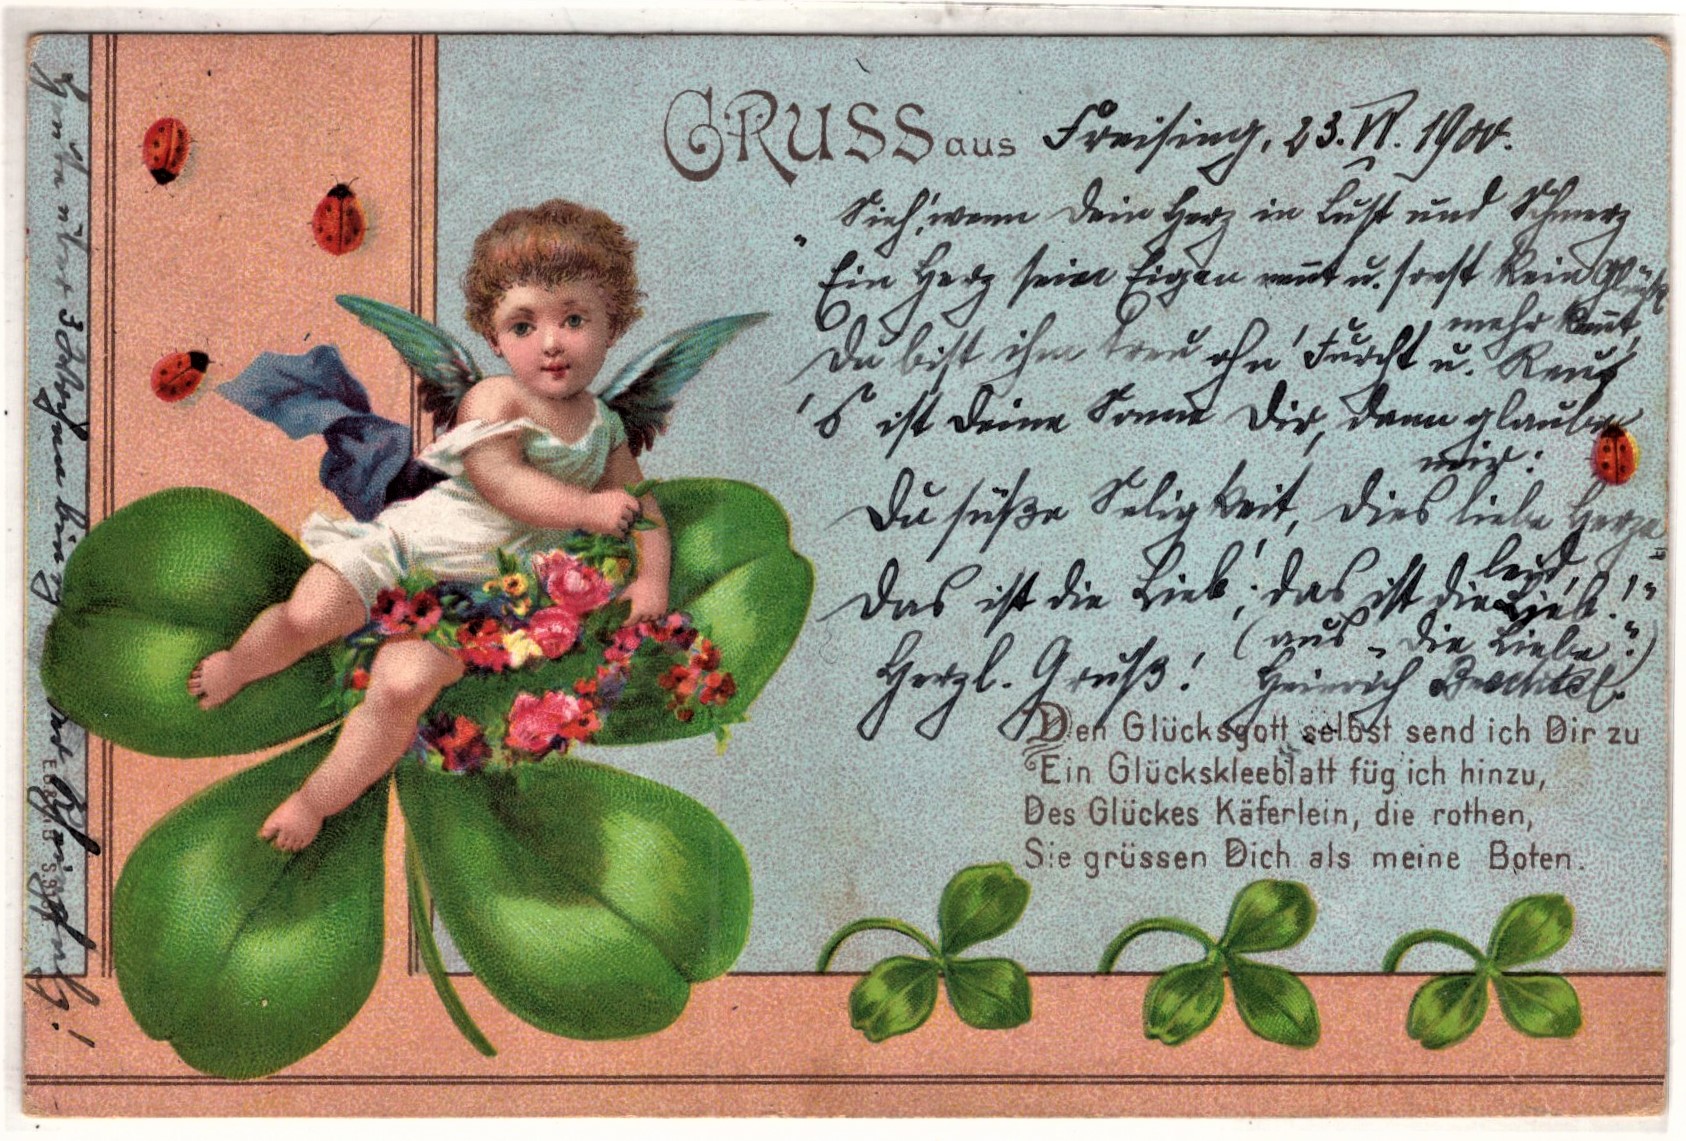 GRUSS aus Freising, 23. VI. 1900.
"Sieh', wenn Dein Herz in Lust und Schmerz
Ein Herz sein Eigen nennt u. sonst kein Glück
mehr kennt,
Du bist ihm treu ohn' Furcht u. Reu,
'S ist Deine Sonne Dir, dann glaube
mir:
Du süße Seligkeit, dies liebe Herze-
leid,
Das ist die Lieb', das ist die Lieb'!"
(aus "Die Liebe".)
Herzl. Gruß! Heinrich
Den Glücksgott selbst send ich Dir zu
Ein Glückskleeblatt füg ich hinzu,
Des Glückes Käferlein, die rothen,
Sie grüssen Dich als meine Boten.
Heute über 3 Wochen